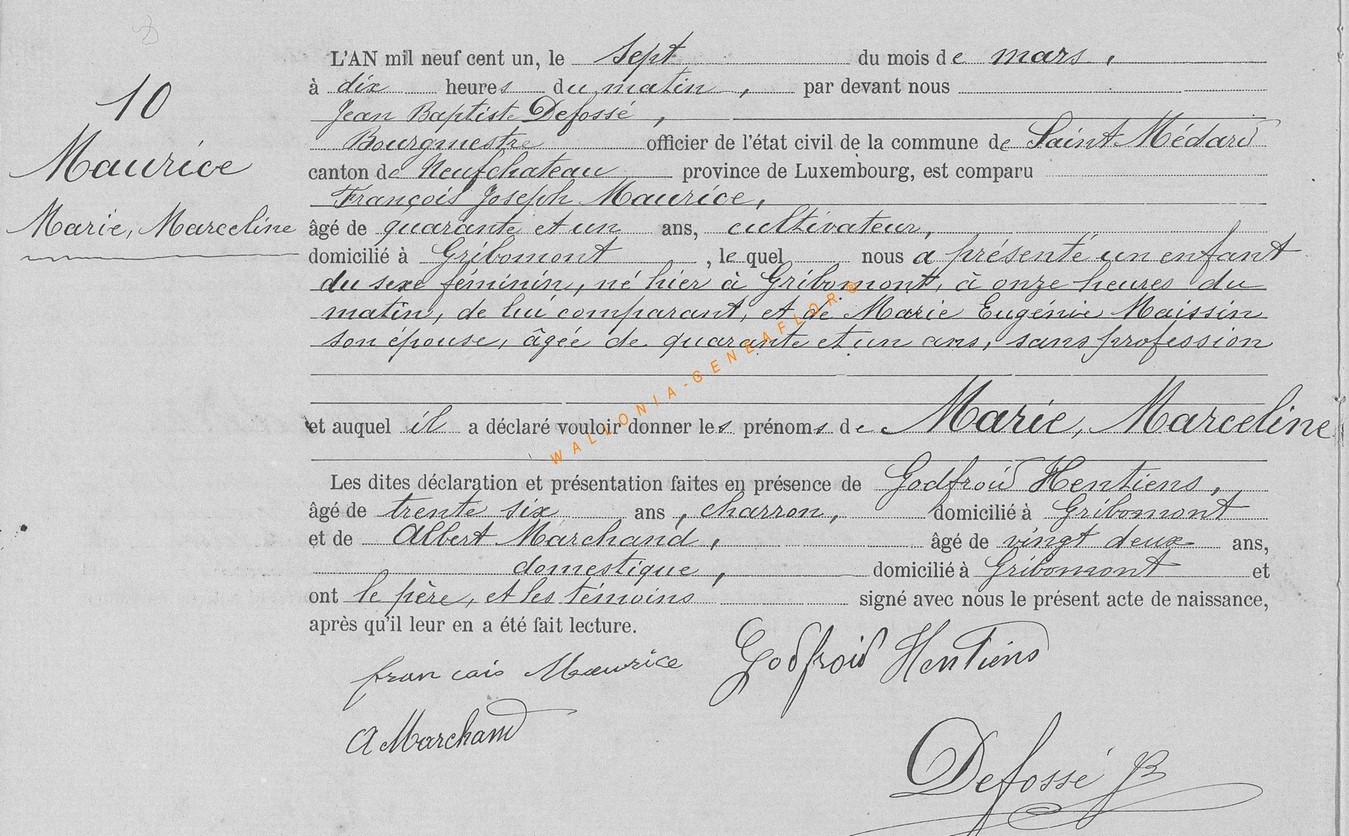 10
Maurice
Marie, Marceline
L'AN mil neuf cent un, le sept du mois de mars,
à dix heures du matin, par devant nous
Jean Baptiste Defossé,
Bourgmestre officier de l'état civil de la commune de Saint Médard
canton de Neufchateau province de Luxembourg, est comparu
François Joseph Maurice,
âgé de quarante et un ans, cultivateur,
domicilié à Gribomont, le quel nous a présenté un enfant
du sexe féminin, né hier à Gribomont, à onze heures du
matin, de lui comparant, et de Marie Eugénie Maissin
son épouse, âgée de quarante et un ans, sans profession
et auquel il a déclaré vouloir donner les prénoms de Marie, Marceline
Les dites déclaration et présentation faites en présence de Godfroid Hentiens,
âgé de trente six ans, charron, domicilié à Gribomont
et de Albert Marchand, âgé de vingt deux ans,
domestique, domicilié à Gribomont et
ont le père, et les témoins signé avec nous le présent acte de naissance,
après qu'il leur en a été fait lecture.
francais Maurice Godfroid Hentiens
A Marchand
Defossé JB
WALLONIA-GENEAFLORE